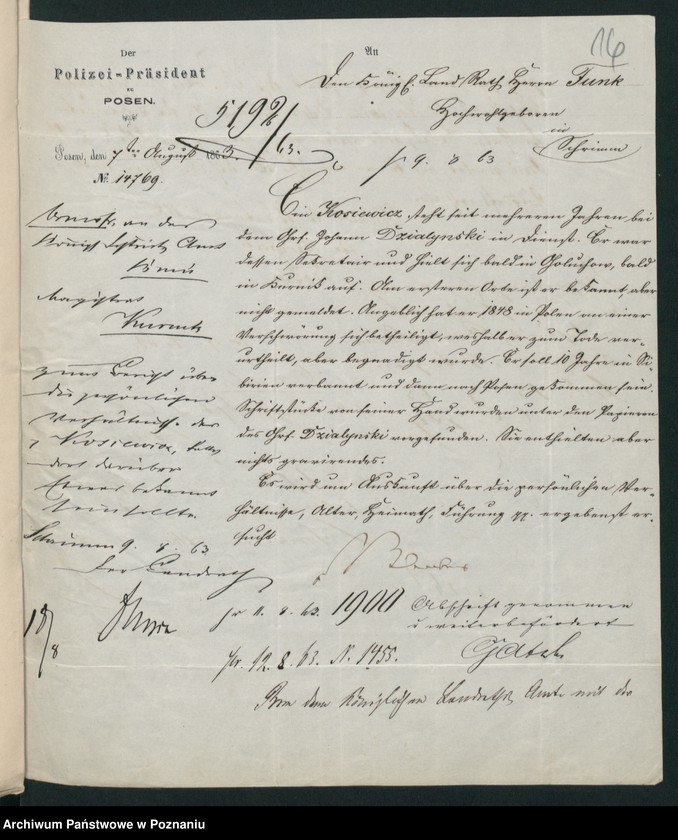 16
Der
Polizei-Präsident
zu
POSEN.
An
Den Königl. Land Rath Herrn Funk
Hochwohlgeboren
in
Schrimm
5192/63.
Posen, den 7ten August 1863.
№ 14769.
pr 9. 8 63
Ein Kosiewicz steht seit mehreren Jahren bei
dem Grf. Johann Dzialynski in Dienst. Er war
dessen Sekretair und hielt sich bald in Goluchow, bald
in Kurnik auf. Am ersteren Orte ist er bekannt, aber
nicht gemeldet. Angeblich hat er 1848 in Polen an einer
Verschwörung sich betheiligt, weshalb er zum Tode ver-
urtheilt, aber begnadigt wurde. Er soll 10 Jahre in Si-
birien verbannt und dann nach Posen gekommen sein.
Schriftstücke von seiner Hand wurden unter den Papieren
des Grf. Dzialynski vorgefunden. Sie enthielten aber
nichts gravirendes.
Es wird um Auskunft über die persönlichen Ver-
hältnisse, Alter, Heimath, Führung pp. ergebenst er-
sucht
an das
Königl Distrikts Amt
Magistrat
Kurnik
zum Bericht über
die persönlichen
Verhältnisse des
p Kosiewicz, falls
dort darüber
Etwas bekannt
sein sollte.
Schrimm 9. 8. 63
Der Landrath
Funk
18/8
pr 11. 8. 63. 1900
Abschrift genommen
u weiterbefördert
pr. 12. 8. 63. N. 1455.
dem Königlichen Landraths Amte mit
Archiwum Państwowe w Poznaniu